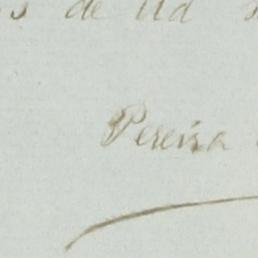 de Ud
Pereira